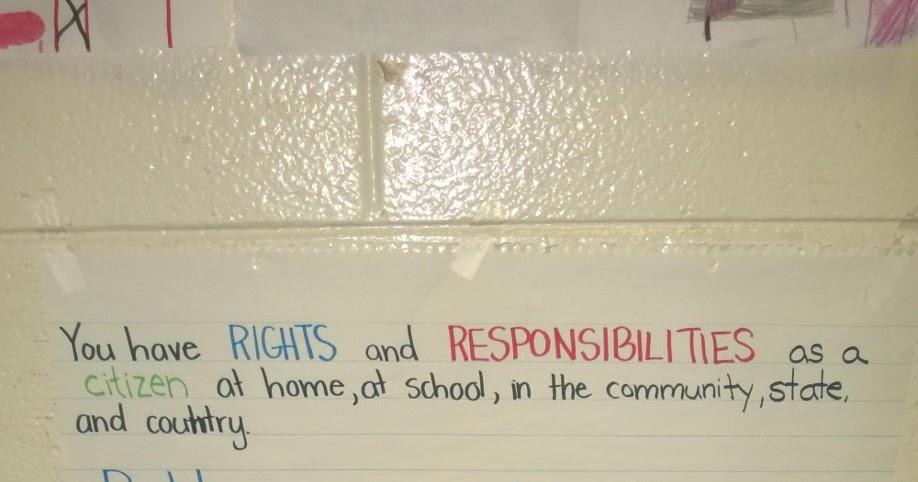 You have RIGHTS and RESPONSIBILITIES as a
citizen at home, at school, in the community, state,
and country.